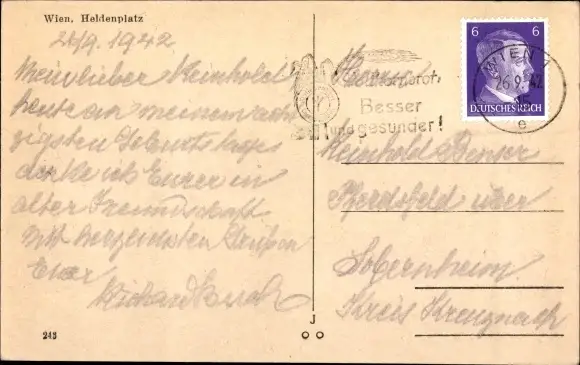 Wien, Heldenplatz
26/9. 1942
Mein lieber Reinhold
heute an meinem acht
zigsten Geburtstage
denke ich Eurer in
alter Freundschaft
Mit herzlichsten Grüßen
Euer
Richard
243
J
WIEN
26.9.42
e
6 6
DEUTSCHES REICH
Besser
und gesünder!
Herrn
Reinhold
Pferdsfeld über
Sobernheim
Kreis Kreuznach